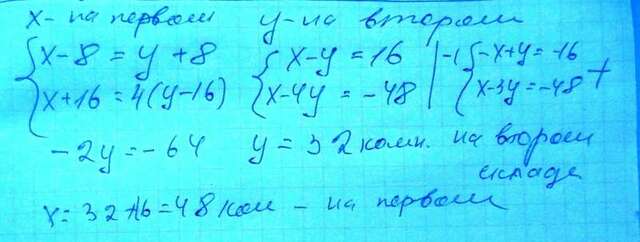 x - на первом y - на втором
x - 8 = y + 8 x - y = 16 | -1 -x + y = -16
x + 16 = 4(y - 16) x - 4y = -48 x - 3y = -48 +
-2y = -64 y = 32 комн. на втором
складе
x = 32 + 16 = 48 ком - на первом